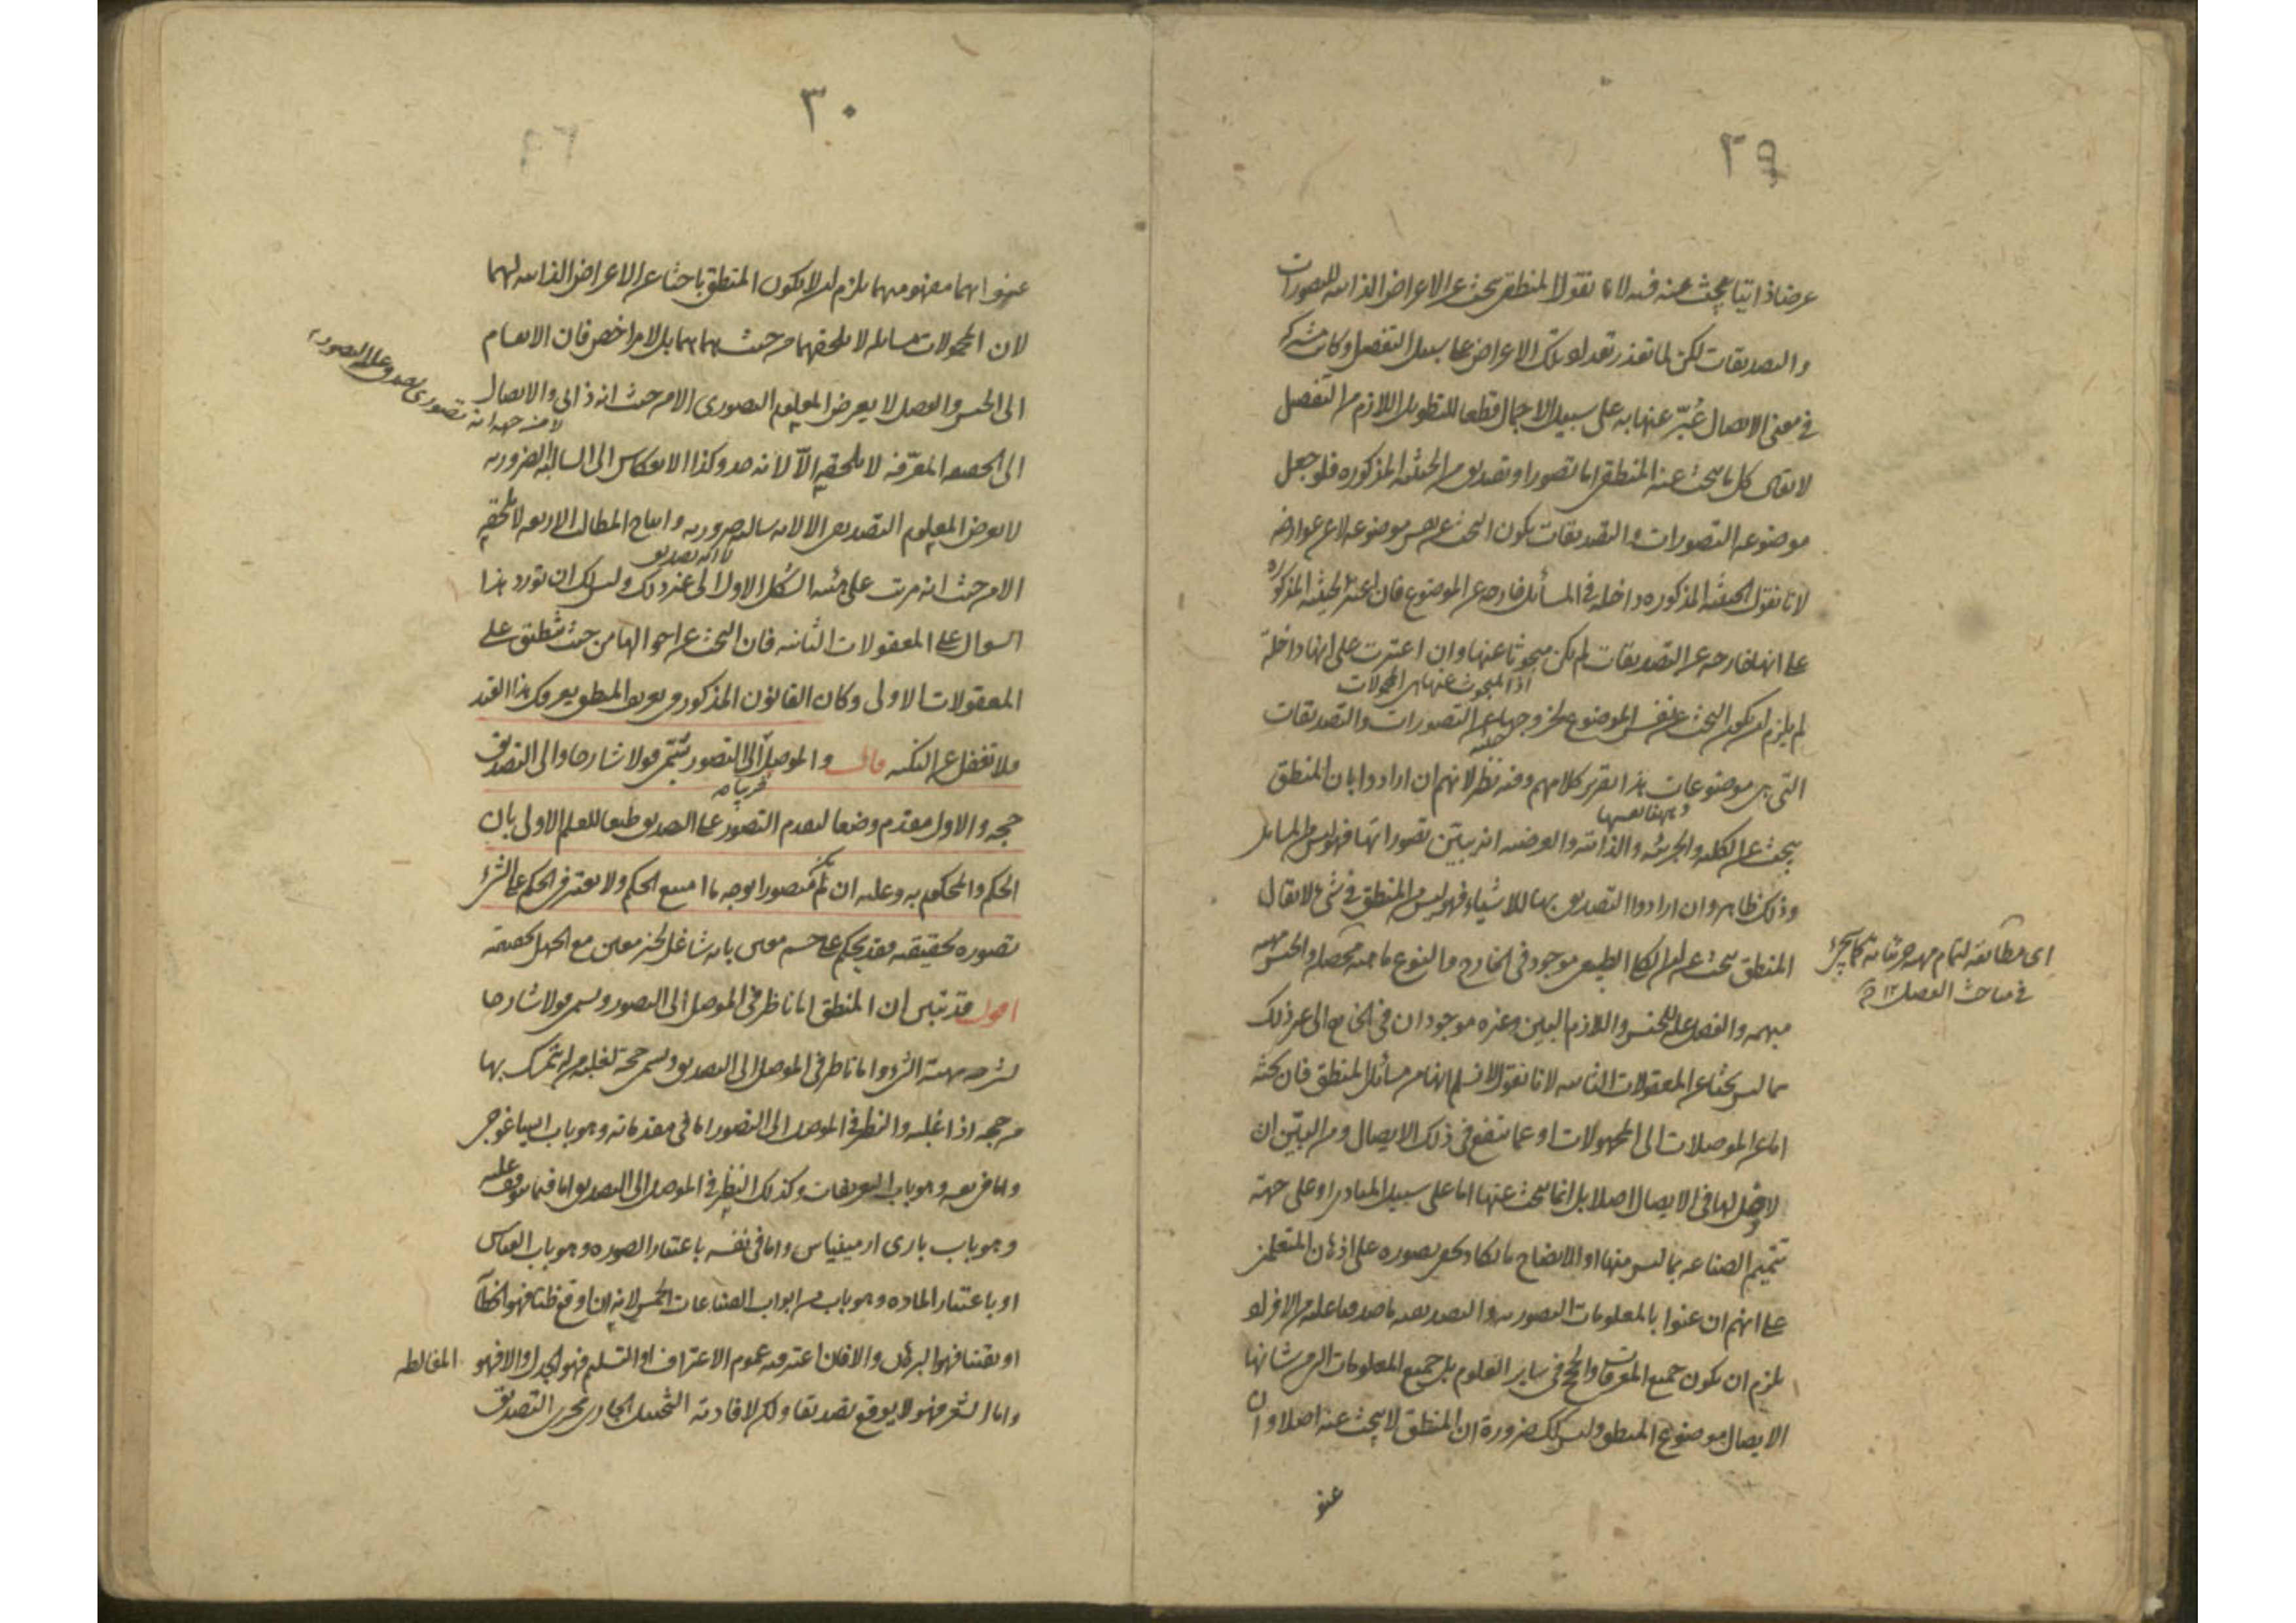 ٢٩
عرضا ذاتيا يبحث عنه فيه لانا نقول المنطقي يبحث عن الاعراض الذاتيه للتصورات
والتصديقات لكن لما تعذر تعداد تلك الاعراض على سبيل التفصيل وكانت مشتركة
في معنى الايصال عُبّر عنها به على سبيل الاجمال قطعا للتطويل اللازم من التفصيل
لا يقال كل ما يبحث عنه المنطقي اما تصور او تصديق من الحيثيه المذكوره فلو جعل
موضوعه التصورات والتصديقات يكون البحث عن نفس موضوعه لا عن عوارضه
لانا نقول الحيثيه المذكوره داخله في المسائل خارجه عن الموضوع فان اعتبرت الحيثيه المذكوره
على انها خارجه عن التصديقات لم يكن مبحوثا عنها وان اعتبرت على انها داخلة
اذ المبحوث عنها هى المحمولات
لم يلزم ان يكون البحث عن نفس الموضوع لخروجها عن التصورات والتصديقات
حينئذ
التى هى موضوعات هذا تقرير كلامهم وفيه نظر لانهم ان ارادوا بان المنطق
يبحث عن الكليه والجزئيه والذاتيه والعرضيه انه يبيّن تصوراتها فهو ليس من المسائل
وذلك ظاهر وان ارادوا التصديق بها للاشياء فهو ليس من المنطق في شئ لا يقال
المنطق يبحث عن ان الكلى الطبيعى موجود في الخارج والنوع ماهيه محصله والجنس ماهيه
اى مطابقة لتمام
في مباحث الفصل ١٢
مبهمه والفصل علة للجنس واللازم البين وغيره موجودان في الخارج الى غير ذلك
مما ليس بحثا عن المعقولات الثانيه لانا نقول لا نسلم انها من مسائل المنطق فان بحثه
اما عن الموصلات الى المجهولات او عما ينفع في ذلك الايصال ومن البيّن ان
لا دخل لها في الايصال اصلا بل انما يبحث عنها اما على سبيل المبادى او على جهة
تتميم الصناعه بما ليس منها او لايضاح ما يكاد يخفى تصوره على اذهان المتعلمين
على انهم ان عنوا بالمعلومات التصوريه والتصديقيه ما صدقا عليه من الافراد
يلزم ان يكون جميع المعرفات والحجج في ساير العلوم بل جميع المعلومات التى من شانها
الايصال موضوع المنطق وليس كذلك ضرورة ان المنطق لا يبحث عنه اصلا وان
عنو
٣٠
عنوا بهما مفهومهما يلزم ان لا يكون المنطق باحثا عن الاعراض الذاتيه لهما
لان المحمولات مسايله لا تلحقهما من حيث هما هما بل لامر اخص فان الانقسام
الى الجنس والفصل لا يعرض المعلوم التصورى الا من حيث انه ذاتى والايصال
لا من جهه انه تصورى يصدق عليه التصور
الى الحقيقه المعرّفه لا يلحقه الا لانه حد وكذا الانعكاس الى السالبه الضروريه
لا يعرض المعلوم التصديقى الا لانه سالبه ضروريه وانتاج المطالب الاربعه لا يلحقه
لا انه تصديق
الا من حيث انه مرتب على هيئه الشكل الاول الى غير ذلك وليس لك ان تورد هذا
السوال على المعقولات الثانيه فان البحث عن احوالها من حيث تنطبق على
المعقولات الاولى وكان القانون المذكور في تعريف المنطق يعرفك هذا القيد
فلا تغفل عن النكته قال والموصل الى التصور سُمّى قولا شارحا والى التصديق
حجه والاول مقدم وضعا لتقدم التصور على التصديق طبعا للعلم الاولى بان
الحكم والمحكوم به وعليه ان لم يكن متصورا بوجه ما امتنع الحكم ولا يعتبر في الحكم على الشئ
تصوره بحقيقته فقد يحكم على جسم معين بانه شاغل لحيز معين مع الجهل بحقيقته
اقول قد تبين ان المنطق اما ناظر في الموصل الى التصور ويسمى قولا شارحا
لشرحه مهية الشئ واما ناظر في الموصل الى التصديق ويسمى حجة لغلبه من تمسك بها
من حجه اذا غلبه والنظر في الموصل الى التصور اما في مقدماته وهو باب ايساغوجى
واما في نفسه وهو باب التعريفات وكذلك النظر في الموصل الى التصديق اما فيما يتوقف عليه
وهو باب بارى ارمينياس واما في نفسه باعتبار الصوره وهو باب القياس
او باعتبار الماده وهو باب من ابواب الصناعات الخمس لانه ان اوقع ظنا فهو الخطابه
او يقينا فهو البرهان والا فان اعتبر فيه عموم الاعتراف او التسليم فهو الجدل والا فهو المغالطه
واما الشعر فهو لا يوقع تصديقا ولكن لافادته التخييل الجارى مجرى التصديق